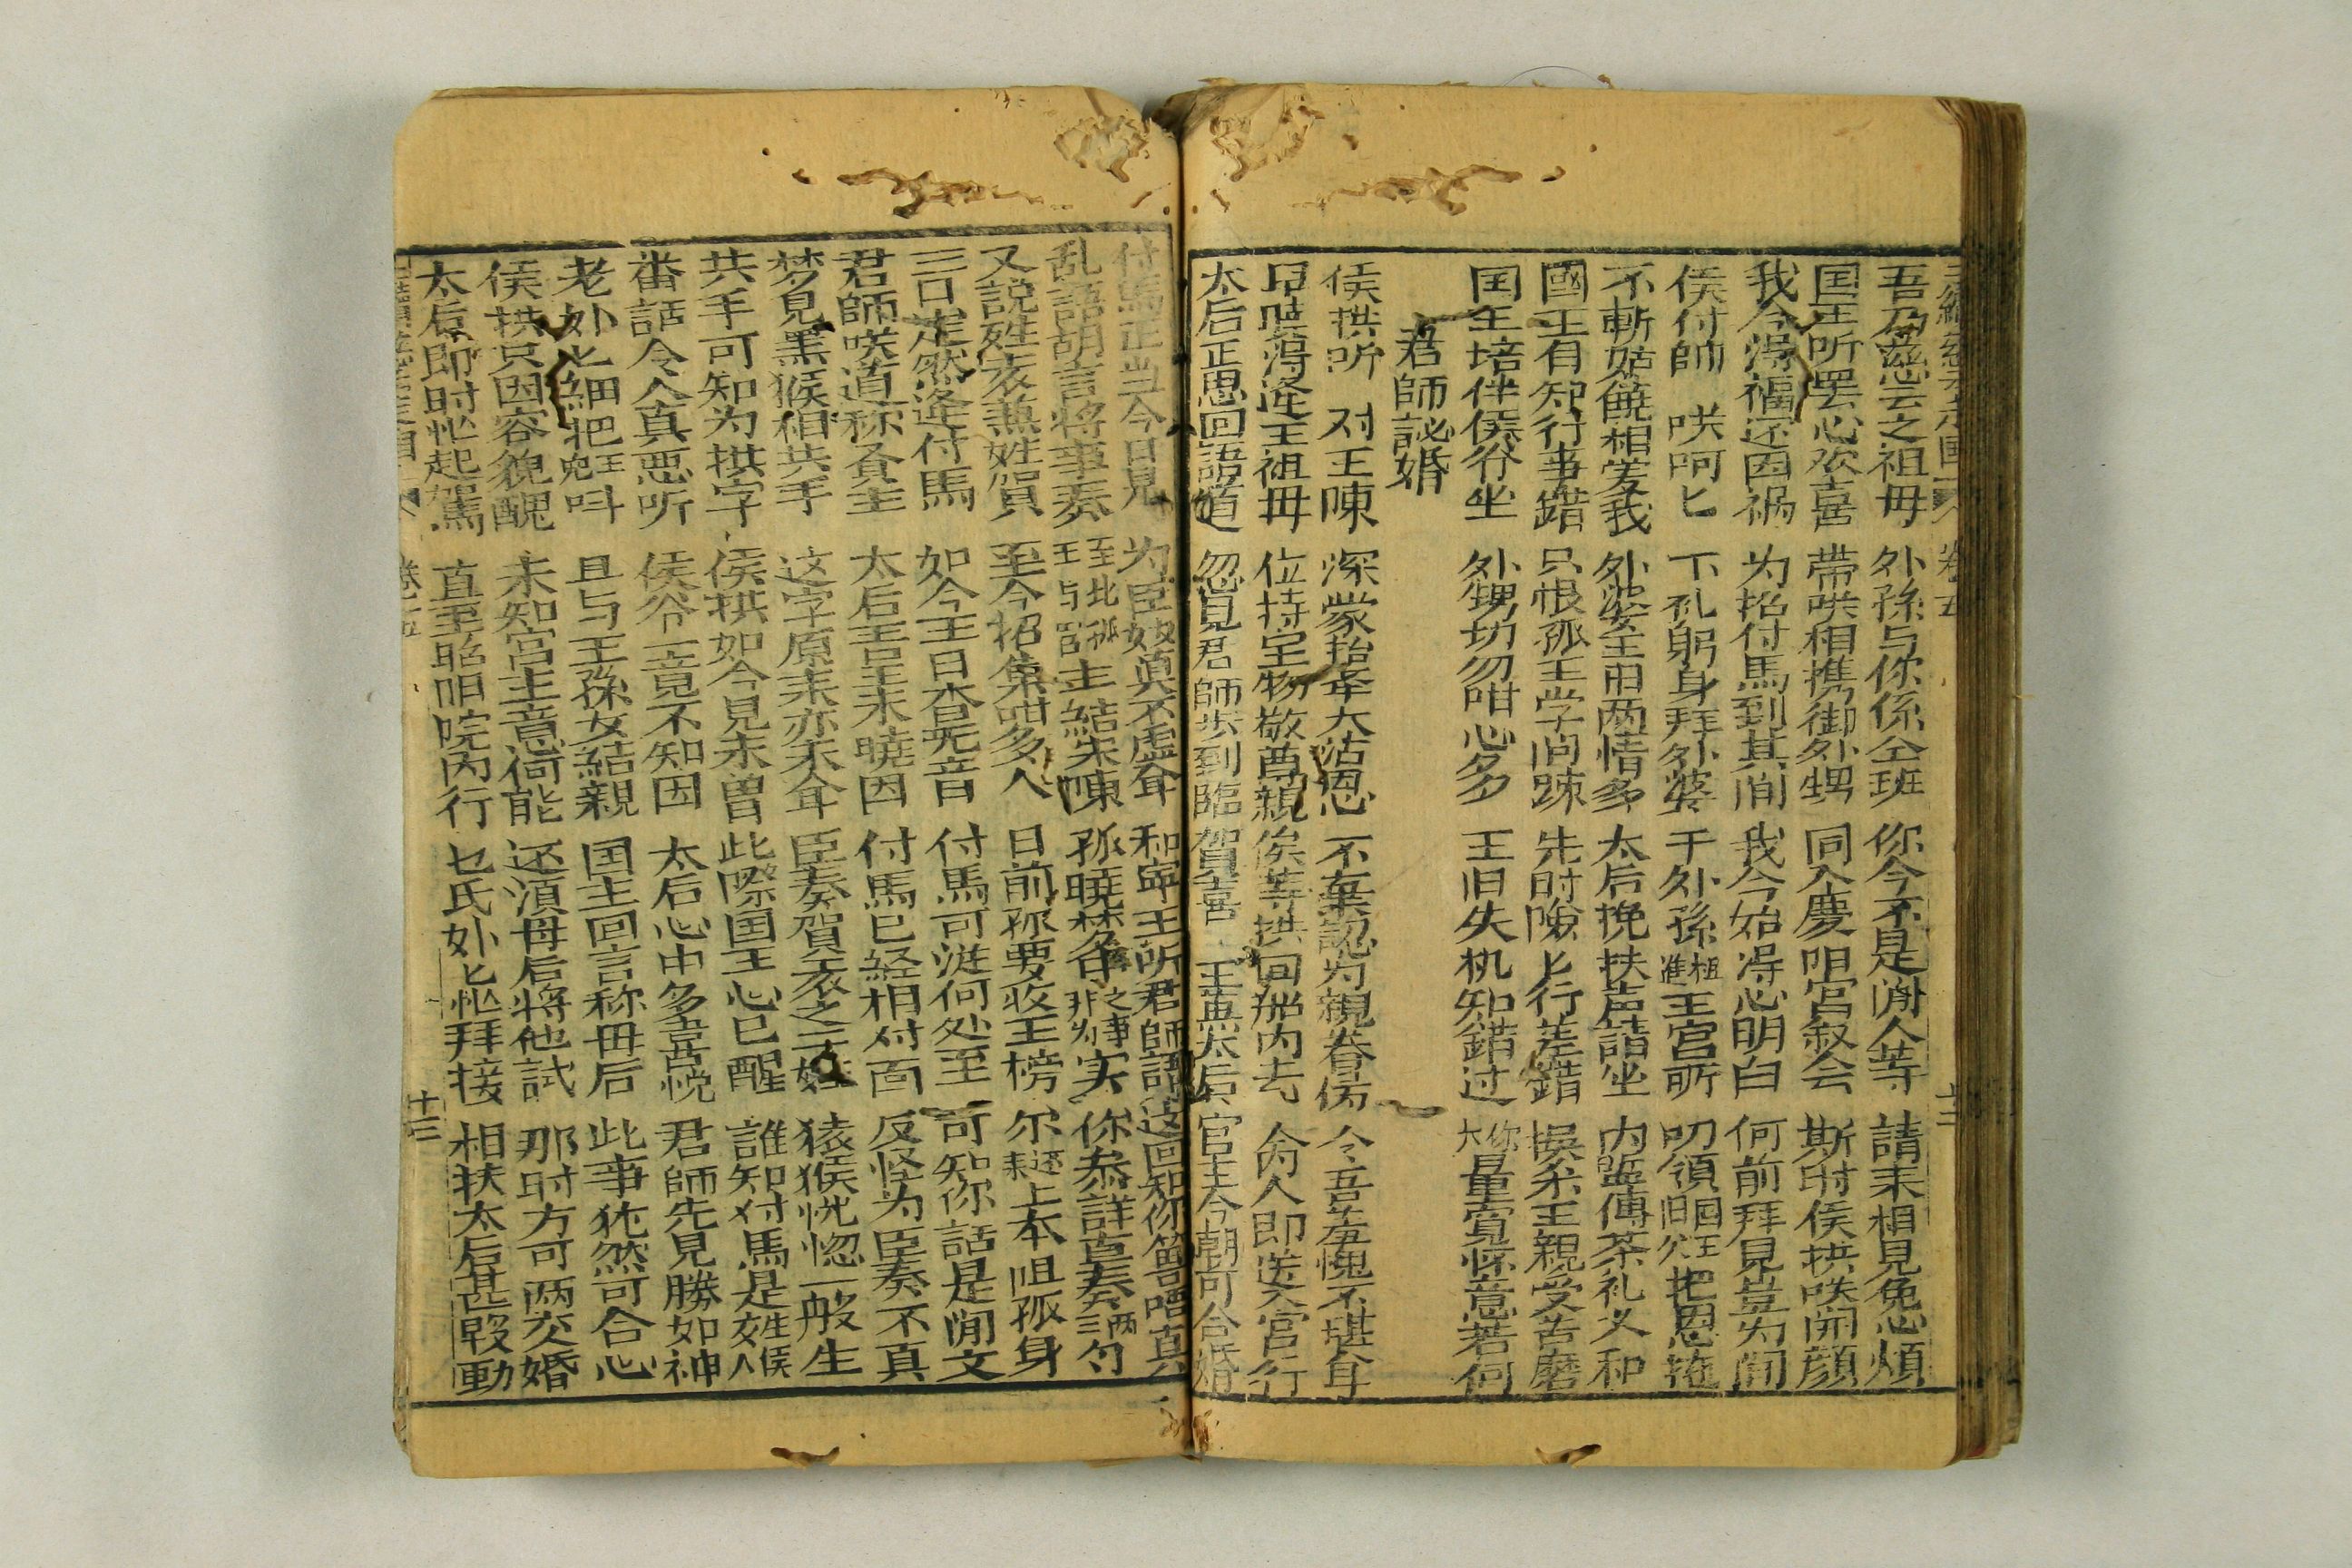 吾乃慈云之祖母 外孫与你係仝班 你今不是閒人等 請来相見免心煩
国王所罢心欢喜 带哄相携乃御外甥 同入慶阳宮叙会 斯时侯拱咲開顔
我今得福还因祸 为招付馬到其間 我今始得心明白 何前拜見豈为閒
侯付師 哄呵匕 下礼躬身拜外婆 千外孫 王宮所 叨領国王把恩拖
不斬姑饒相爱我 外婆王母两情多 太后挽扶声請坐 内監傳茶礼义和
國王有知行事錯 只恨孤王学问踈 先时險匕行差錯 悞杀王親受苦磨
国王培伴侯爷坐 外甥切勿咁心多 王旧失机知錯过 你大量寬怀意若何
君師認婚
侯拱听 对王陳 深蒙抬举大沾恩 不棄認为親眷情 令吾羞愧不堪身
得逢王祖母 位持宝物敬尊親 侯等拱回船内去 命内人即送入宮行
太后正思回語道 忽見君師共到臨 賀喜 王共太后 官主今朝可合婚
付馬正当今日見 为臣妓真不虛耸 和寧王所君師語 这回知你筭唔真
乱語胡言将事奏 至此孤王与宮主結朱陳 孤曉禁角中之事非为实 你恭詳直奏两三勺
又説姓袁兼姓賀 至今招集咁多人 日前孫要收王榜 尔还未上本咀孤身
三口走然逢付馬 如今王日杳晃音 付馬可逃何处至 可知你話是閒文
君師咲道称吾主 太后吉王未曉因 付馬已经相对面 反怪为臣奏不真
梦見黑猴相共手 这字原来亦未耸 臣奏賀袁之三姓 猿猴恍惚一般生
共手可知为拱字 侯拱如今見未曽 此際国王心已醒 誰知付馬是姓侯人
番話令人真悪听 侯爷一竟不知因 太后心中多喜悅 君師先見勝如神
老外匕細把王叫 且与王孫女結親 国主回言称母后 此事犹然可合心
侯拱只因容貌醜 未知宮主意何能 还須母后将他試 那时方可两交婚
太后即时忙起駕 直至昭阳院内行 乜氏外匕忙拜接 相扶太后甚殷勤
卷五 十三